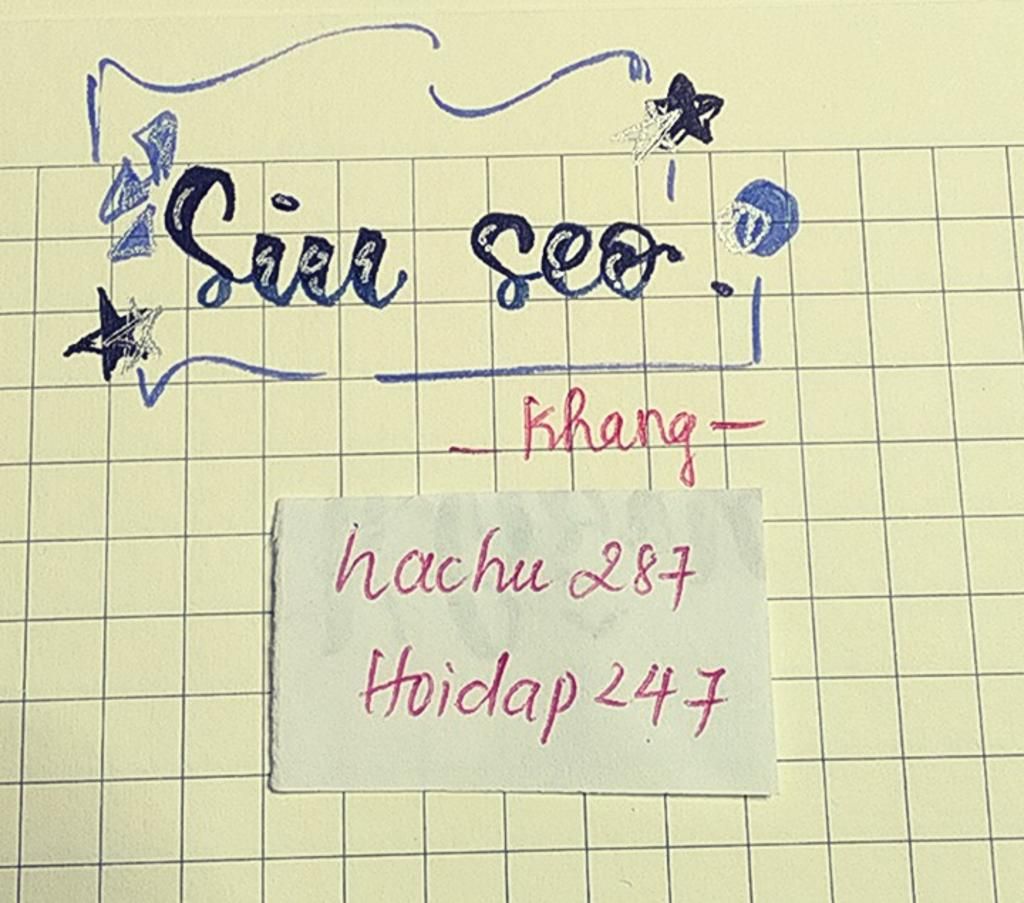 Siu seo.
- Khang -
hachu 287
Hoidap 247